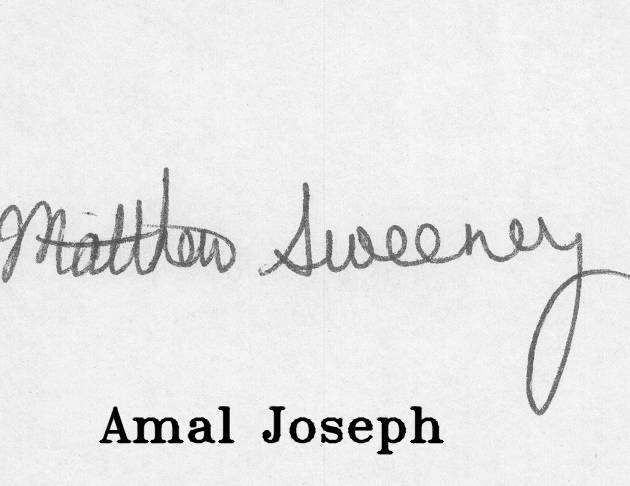 Matthew Sweeney
Amal Joseph